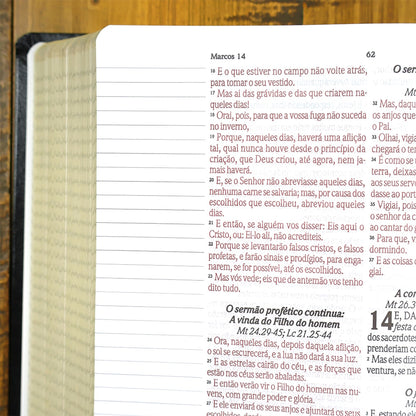 Marcos 14
62
16 E o que estiver no campo não volte atrás,
para tomar o seu vestido.
17 Mas ai das grávidas e das que criarem na-
queles dias!
18 Orai, pois, para que a vossa fuga não suceda
no inverno,
19 Porque, naqueles dias, haverá uma aflição
tal, qual nunca houve desde o princípio da
criação, que Deus criou, até agora, nem ja-
mais haverá.
20 E, se o Senhor não abreviasse aqueles dias,
nenhuma carne se salvaria; mas, por causa dos
escolhidos que escolheu, abreviou aqueles
dias.
21 E então, se alguém vos disser: Eis aqui o
Cristo, ou: Ei-lo ali, não acrediteis.
22 Porque se levantarão falsos cristos, e falsos
profetas, e farão sinais e prodígios, para enga-
narem, se for possível, até os escolhidos.
23 Mas vós vede; eis que de antemão vos tenho
dito tudo.
O sermão profético continua:
A vinda do Filho do homem
Mt 24.29-45; Lc 21.25-44
24 Ora, naqueles dias, depois daquela aflição,
o sol se escurecerá, e a lua não dará a sua luz.
25 E as estrelas cairão do céu, e as forças que
estão nos céus serão abaladas.
26 E então verão vir o Filho do homem nas nu-
vens, com grande poder e glória.
27 E ele enviará os seus anjos e ajuntará os seus
escolhidos,
O ser
Mt
32 Mas, daqu
os anjos que
o Pai.
33 Olhai, vigia
chegará o ter
34 É como se
terra, deixas
aos seus serv
dasse ao port
35 Vigiai, pois
o senhor da c
ao cantar do g
36 Para que, v
dormindo.
37 E as coisas
giai.
A con
Mt 26.3
14 E, DA
festa d
dos sacerdotes
prenderiam co
2 Mas eles dizi
ventura, se nã